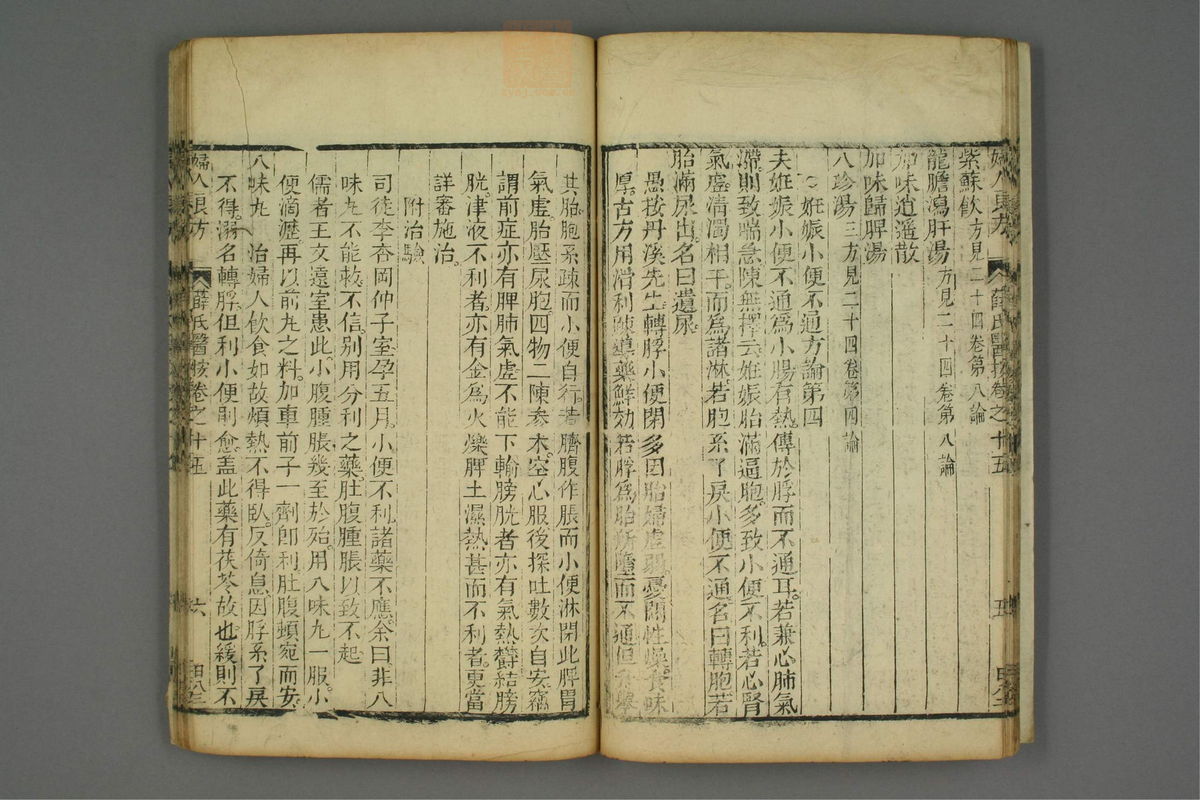 婦人良方 薛氏醫按卷之十五 五
紫蘇飲方見二十四卷第八論
龍膽瀉肝湯方見二十四卷第八論
加味逍遙散
加味歸脾湯
八珍湯三方見二十四卷第四論
○妊娠小便不通方論第四
夫妊娠小便不通爲小腸有熱傳於脬而不通耳若兼心肺氣
滯則致喘急陳無擇云妊娠胎滿逼胞多致小便不利若心腎
氣虛清濁相干而爲諸淋若胞系了戾小便不通名曰轉胞若
胎滿尿出名曰遺尿
愚按丹溪先生轉脬小便閉多因胎婦虛弱憂悶性燥食味
厚古方用滑利踈導藥鮮効若脬爲胎所墮而不通但升舉
其胎胞系疎而小便自行若臍腹作脹而小便淋閉此脬胃
氣虛胎壓尿胞四物二陳參术空心服後探吐數次自安竊
謂前症亦有脾肺氣虛不能下輸膀胱者亦有氣熱欝結膀
胱津液不利者亦有金爲火爍脾土濕熱甚而不利者更當
詳審施治
附治驗
司徒李杏岡仲子室孕五月小便不利諸藥不應余曰非八
味丸不能救不信別用分利之藥肚腹腫脹以致不起
儒者王文遠室患此小腹腫脹幾至於殆用八味丸一服小
便滴瀝再以前丸之料加車前子一劑卽利肚腹頓宛而安
八味丸 治婦人飲食如故煩熱不得臥反倚息因脬系了戾
不得溺名轉脬但利小便則愈盖此藥有茯苓故也緩則不
婦人良方 薛氏醫按卷之十五 六